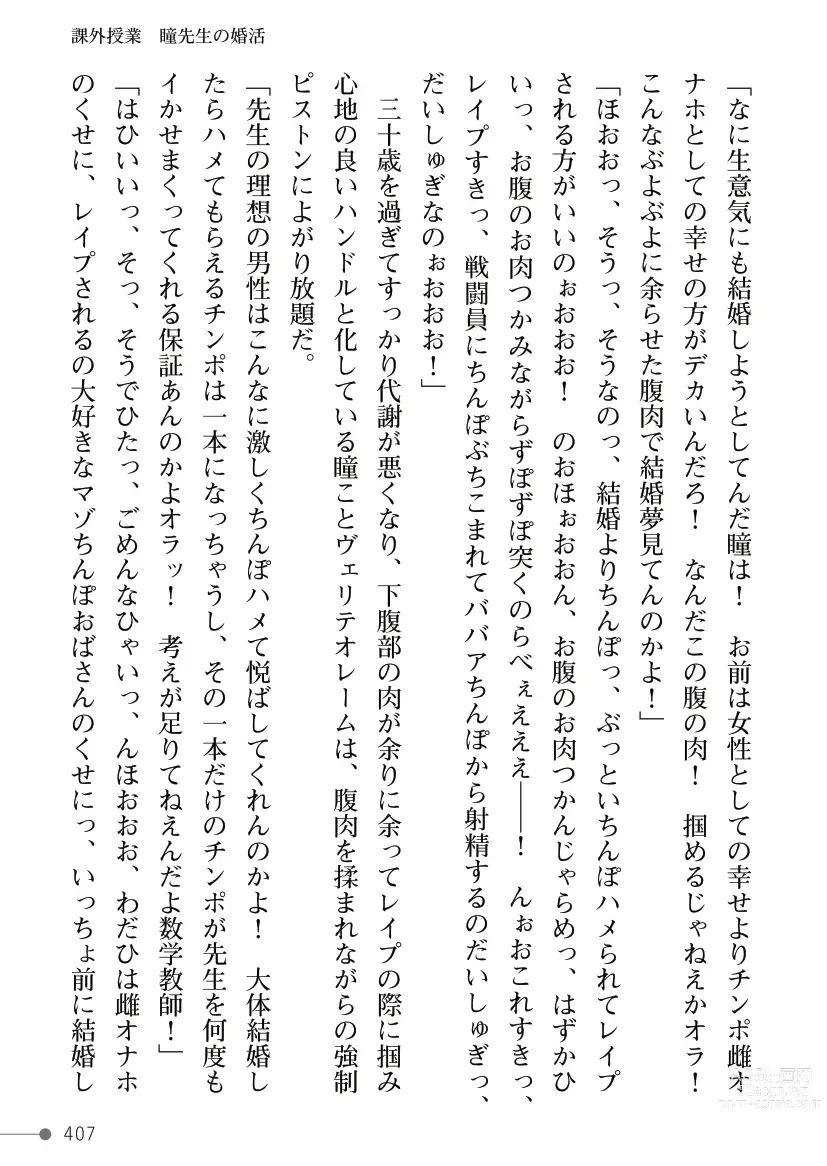 課外授業　瞳先生の婚活
「なに生意気にも結婚しようとしてんだ瞳は！　お前は女性としての幸せよりチンポ雌オ
ナホとしての幸せの方がデカいんだろ！　なんだこの腹の肉！　掴めるじゃねえかオラ！
こんなぶよぶよに余らせた腹肉で結婚夢見てんのかよ！」
「ほおおっ、そうっ、そうなのっ、結婚よりちんぽっ、ぶっといちんぽハメられてレイプ
される方がいいのぉおおお！　のおほぉおおん、お腹のお肉つかんじゃらめっ、はずかひ
いっ、お腹のお肉つかみながらずぽずぽ突くのらべぇえええ――！　んぉおこれすきっ、
レイプすきっ、戦闘員にちんぽぶちこまれてババアちんぽから射精するのだいしゅぎっ、
だいしゅぎなのぉおおお！」
　三十歳を過ぎてすっかり代謝が悪くなり、下腹部の肉が余りに余ってレイプの際に掴み
心地の良いハンドルと化している瞳ことヴェリテオレームは、腹肉を揉まれながらの強制
ピストンによがり放題だ。
「先生の理想の男性はこんなに激しくちんぽハメて悦ばしてくれんのかよ！　大体結婚し
たらハメてもらえるチンポは一本になっちゃうし、その一本だけのチンポが先生を何度も
イかせまくってくれる保証あんのかよオラッ！　考えが足りてねえんだよ数学教師！」
「はひいいっ、そっ、そうでひたっ、ごめんなひゃいっ、んほおおお、わだひは雌オナホ
のくせに、レイプされるの大好きなマゾちんぽおばさんのくせにっ、いっちょ前に結婚し
407